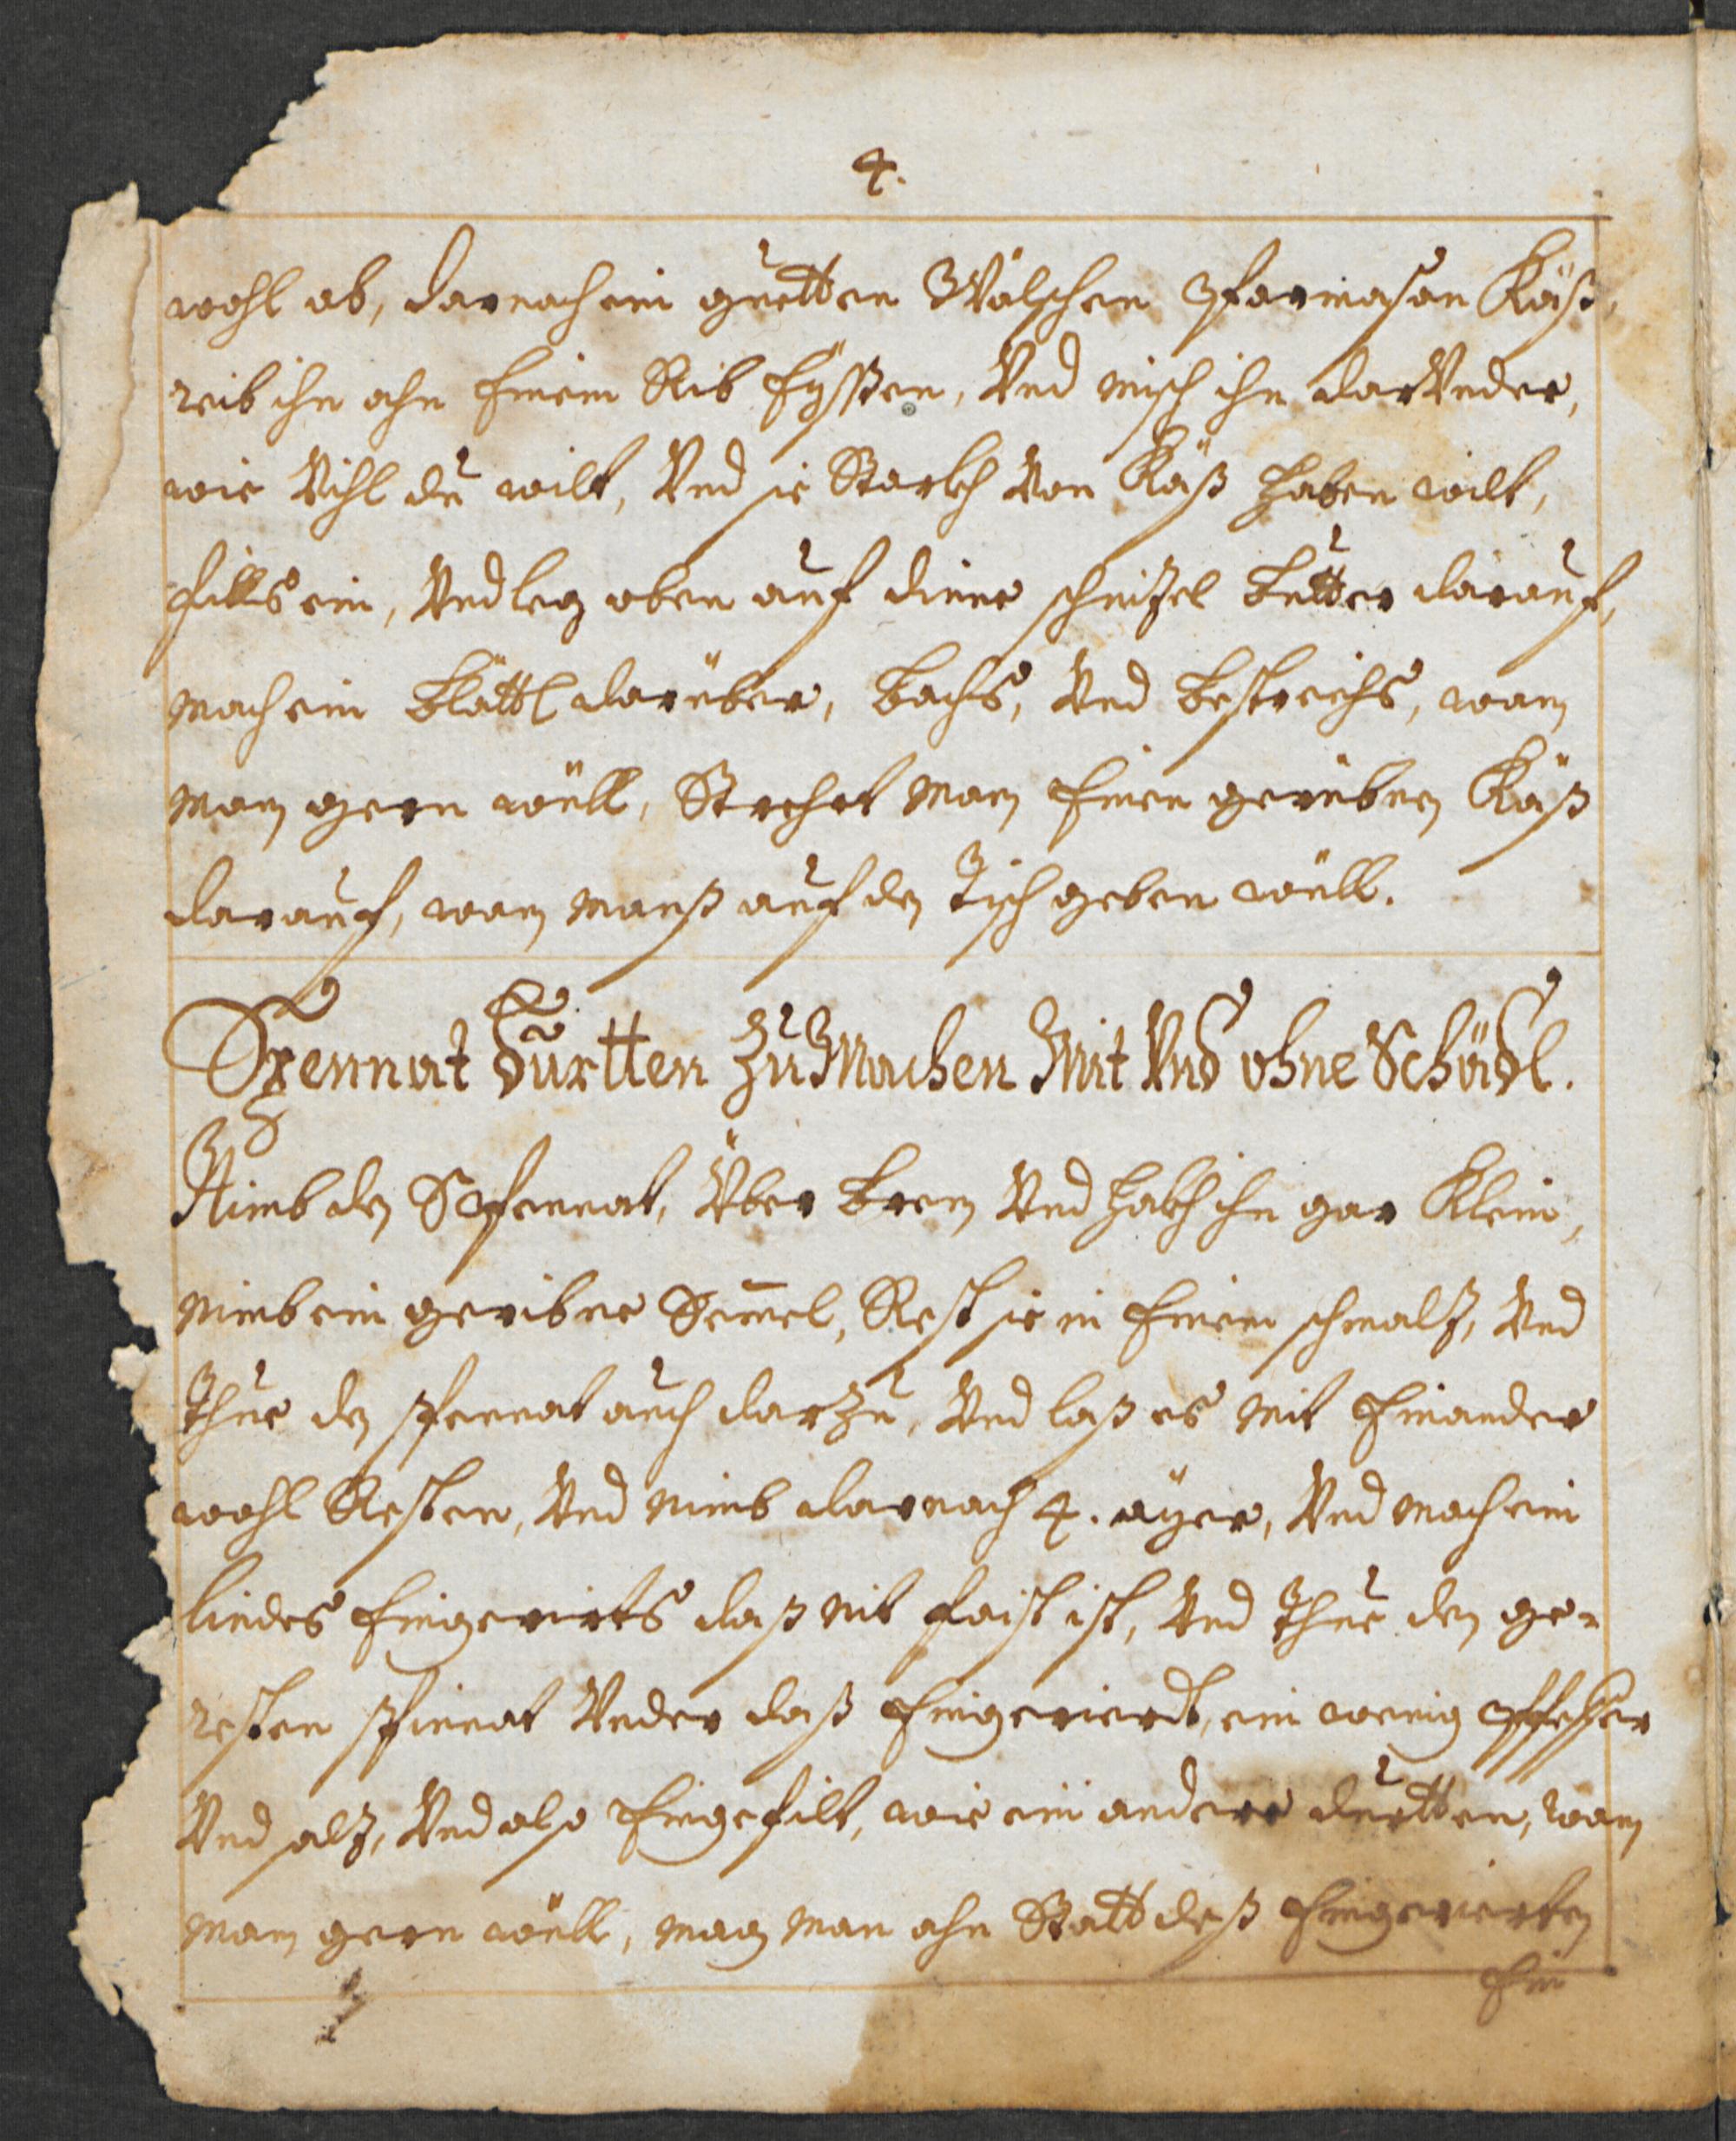 4.
wohl ab, darnach ein guetten Wälschen Pfarmasan Käß,
reib ihn ahn Einem Rib Eyßen, Vnd misch ihn darVnder,
wie Vihl du wilt, Vnd sie Starkh Von Käß haben wilt,
fills ein, Vnd leg oben auf dinne schnitzel Butter darauf,
mach ein Blättl darüber, Bachs, Vnd Bestreichs, wan
man gern wüll, Strehet man Einen geribnen Käß
darauf, wan manß auf den Tisch geben wüll.
Spennat Durtten Zu Machen Mit Vnd ohne Schödl.
Nimb den Spennat, Vber Bren Vnd hakh ihn gar Klein,
nimb ein geribne Semel, Rest sie in Einem schmaltz, Vnd
Thue den spennat auch darzu, Vnd laß es mit Einander
wohl Resten, Vnd nimb darnach 4. äyer, Vnd mach ein
lindes Eingerirts daß nit faist ist, Vnd Thue den ge-
resten spinnat Vnder daß Eingerierdt, ein wenig Pfeffer
Vnd salz, Vnd also Eingefilt, wie ein andere durtten, wan
man gern wüll, mag man ahn Statt deß Eingerierten
Ein